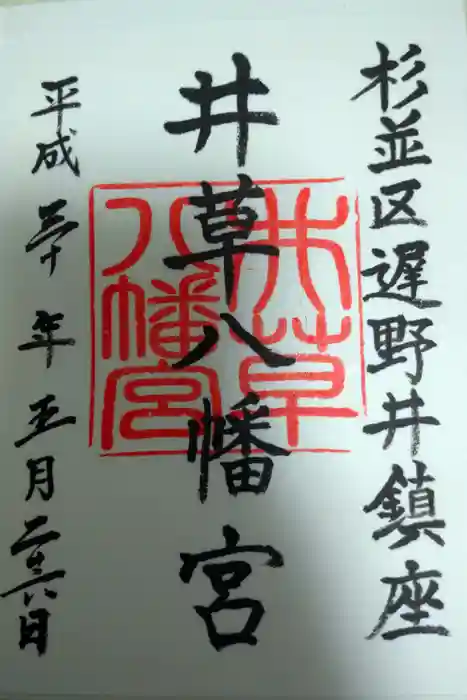 杉並区遅野井鎮座
井草八幡宮
井草
八幡宮
平成三十年五月二十六日